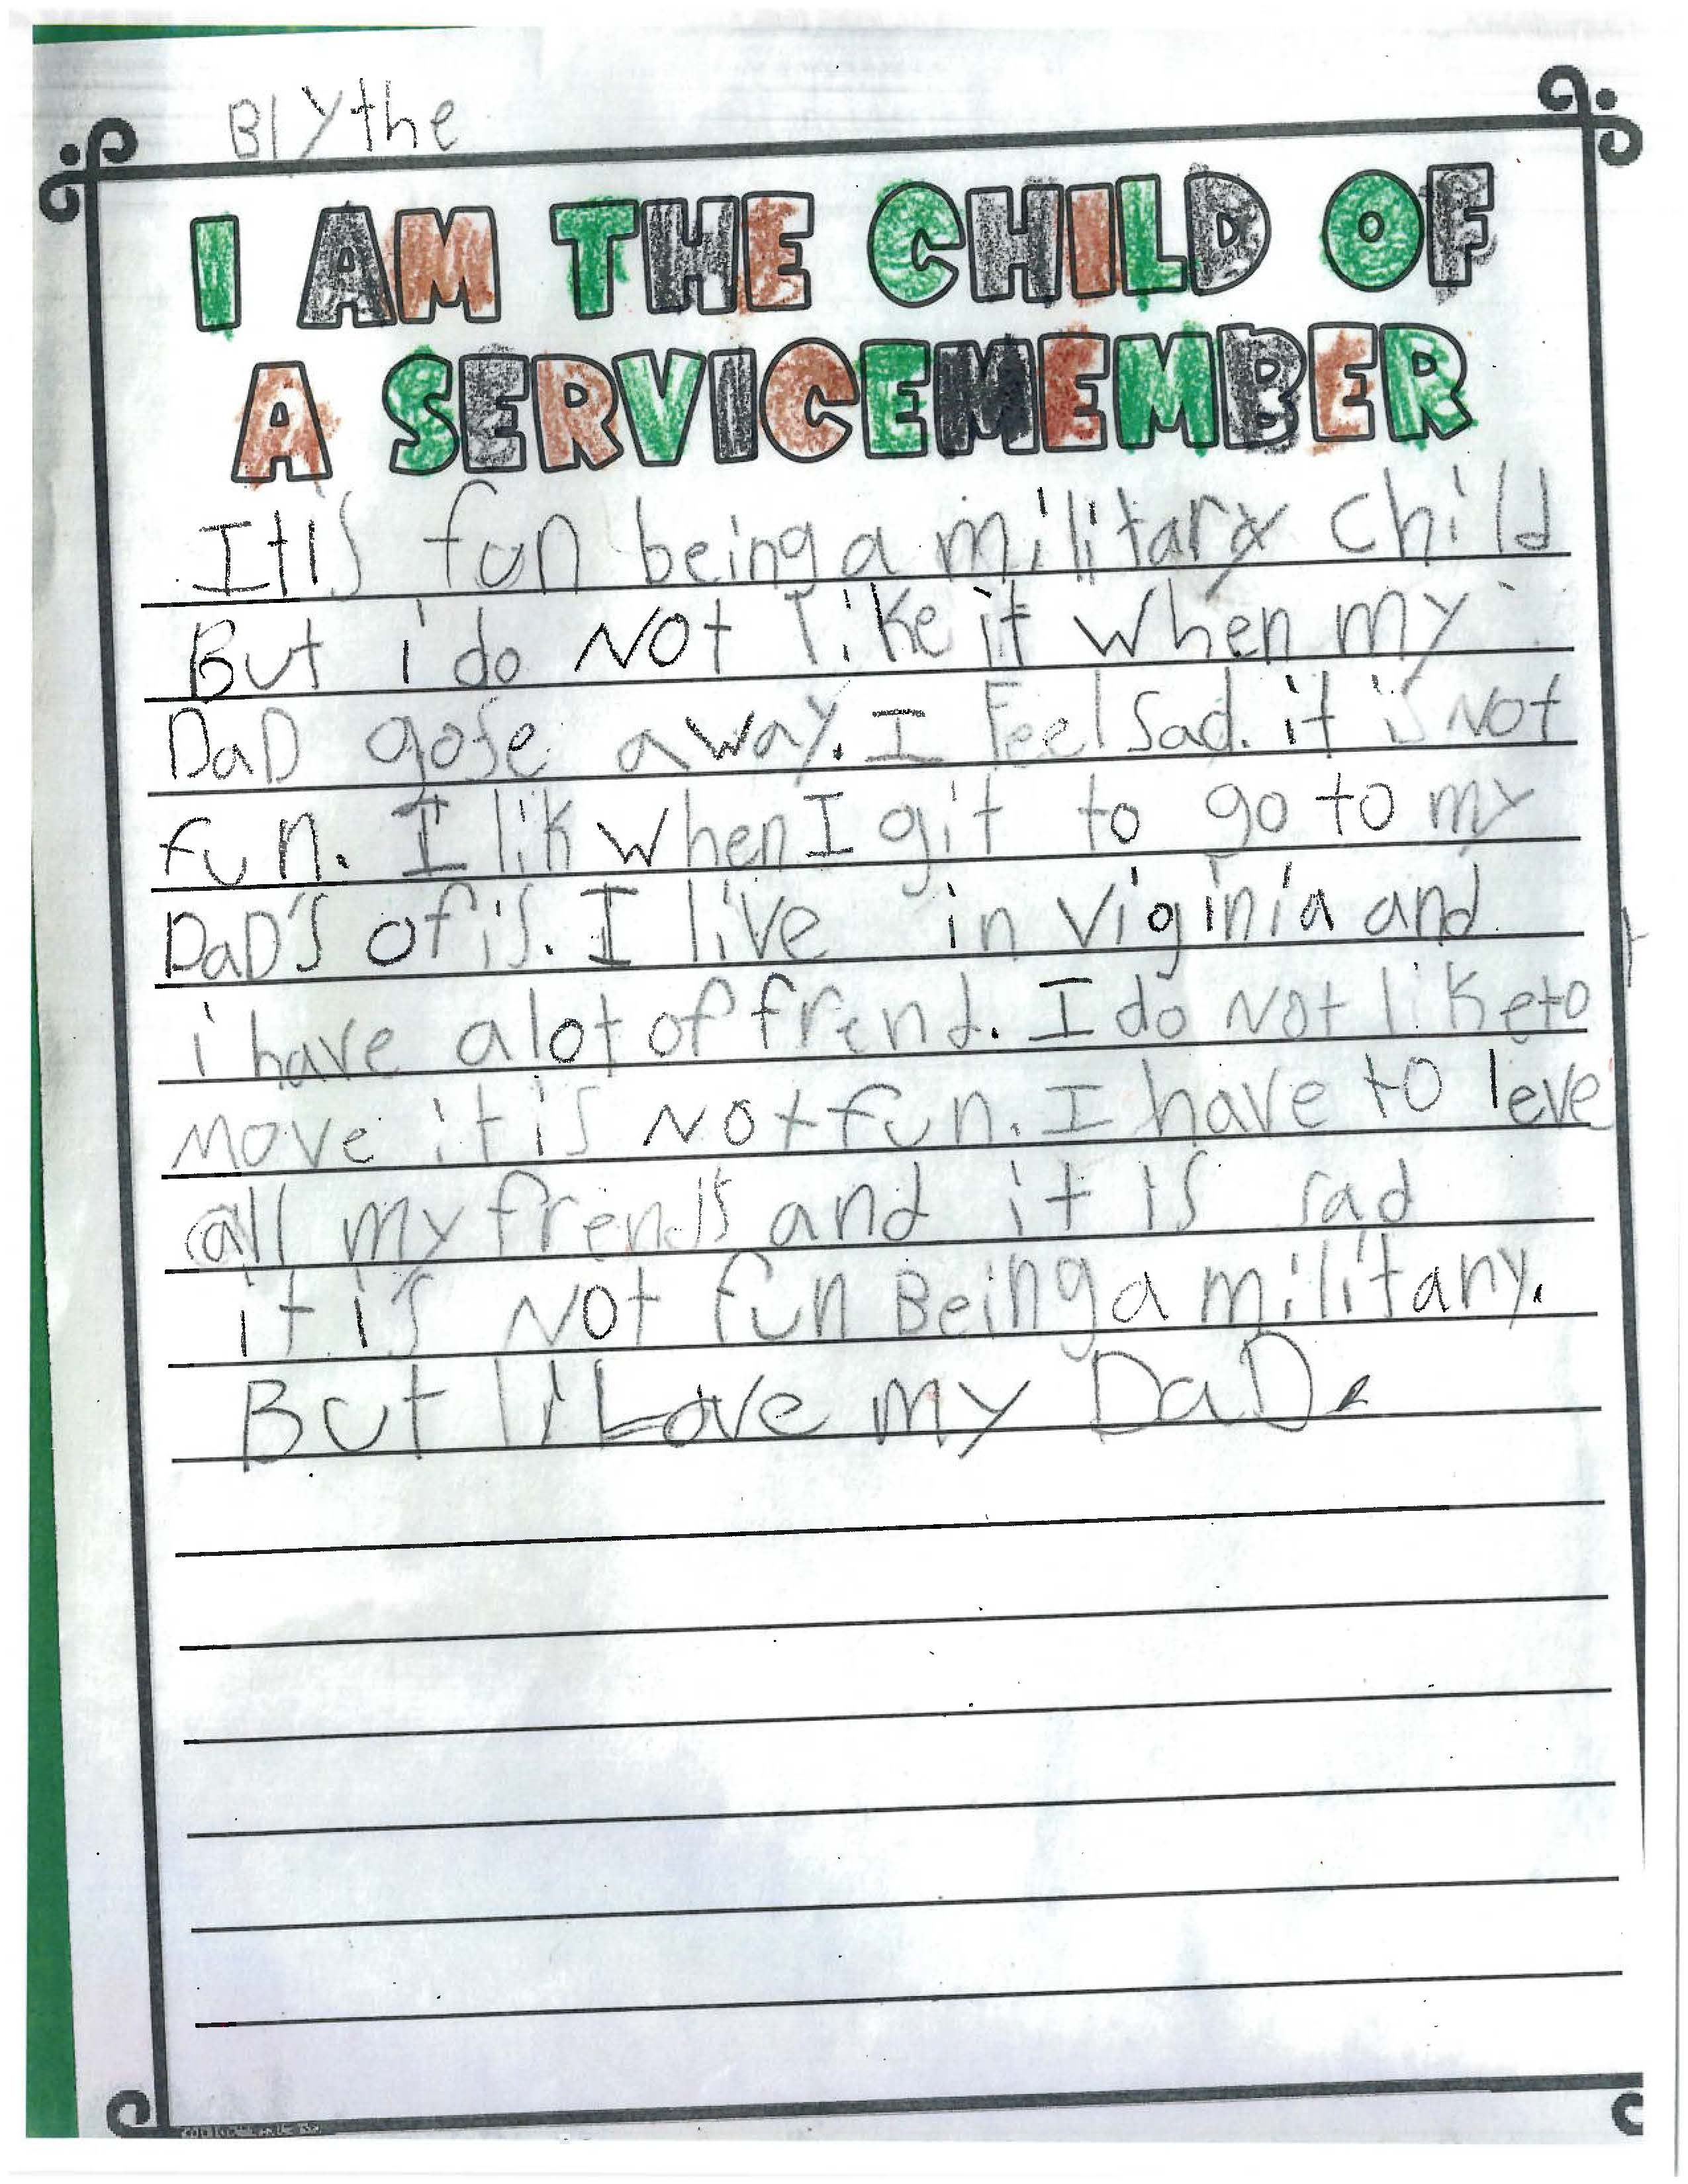 Blythe
I AM THE CHILD OF
A SERVICEMEMBER
It is fun being a military child
But i do Not like it when my
DaD gose away. I Feel sad. it is Not
fun. I lik when I git to go to my
DaD's ofis. I live in viginia and
i have a lot of frend. I do Not like to
move it is Not fun. I have to leve
all my frends and it is sad
it is Not fun Being a military.
But i Love my DaD.